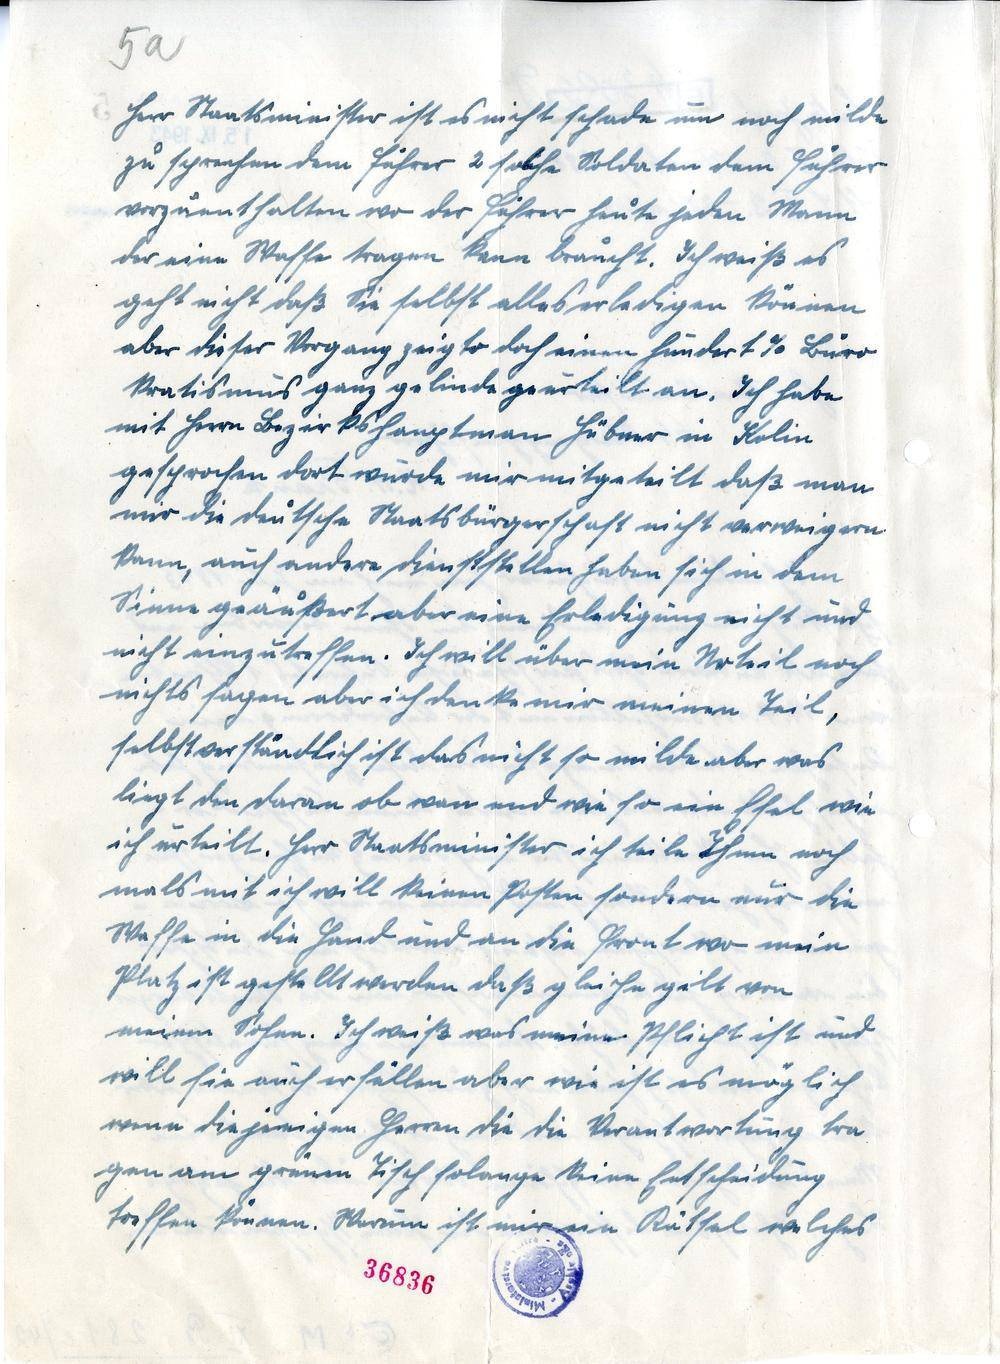 5a
Herr Staatsminister ist es nicht schade um noch milde
zu sprechen dem Führer 2 solche Soldaten dem Führer
vorzuenthalten wo der Führer heute jeden Mann
der eine Waffe tragen kann braucht. Ich weiß es
geht nicht daß Sie selbst alles erledigen können
aber dieser Vorgang zeigte doch einen hundert % Büro
kratismus ganz gelinde geurteilt an. Ich habe
mit Herrn Bezirkshauptman Hübner in Kolin
gesprochen dort wurde mir mitgeteilt daß man
mir die deutsche Staatsbürgerschaft nicht verweigern
kann, auch andere Dienststellen haben sich in dem
Sinne geäußert aber eine Erledigung nicht und
nicht einzutreffen. Ich will über mein Urteil noch
nichts sagen aber ich denke mir meinen Teil,
selbstverständlich ist das nicht so milde aber was
liegt den daran ob wan und wie so ein Esel wie
ich urteilt. Herr Staatsminister ich teile Ihnen noch
mals mit ich will keinen Posten sondern nur die
Waffe in die Hand und an die Front wo mein
Platz ist gestellt werden daß gleiche gilt von
meinem Sohne. Ich weiß was meine Pflicht ist und
will sie auch erfüllen aber wie ist es möglich
wenn diejenigen Herren die die Verantwortung tra
gen am grünen Tisch solange keine Entscheidung
treffen können. Warum ist mir ein Rätsel welches
36836